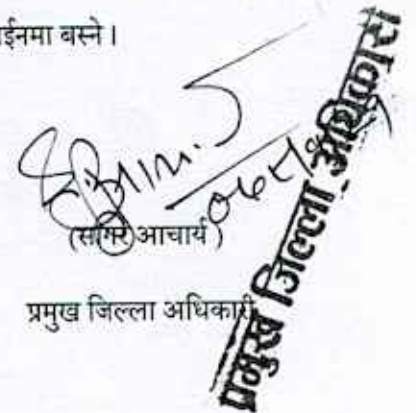 ईनमा बस्ने।
(सागर आचार्य)
प्रमुख जिल्ला अधिकारी
प्रमुख जिल्ला अधिकारी